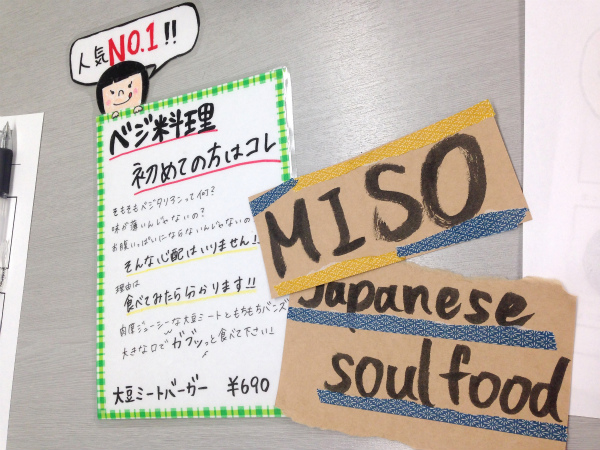 人気NO.1!!
ベジ料理
初めての方はコレ
そもそもベジタリアンって何?
味が薄いんじゃないの?
お腹いっぱいにならないんじゃないの
そんな心配はいりません!!
理由は
食べてみたら分かります!!
肉厚ジューシーな大豆ミートともちもちバンズ
大きな口でガブッっと食べて下さい!
大豆ミートバーガー ¥690
MISO
Japanese
soul food